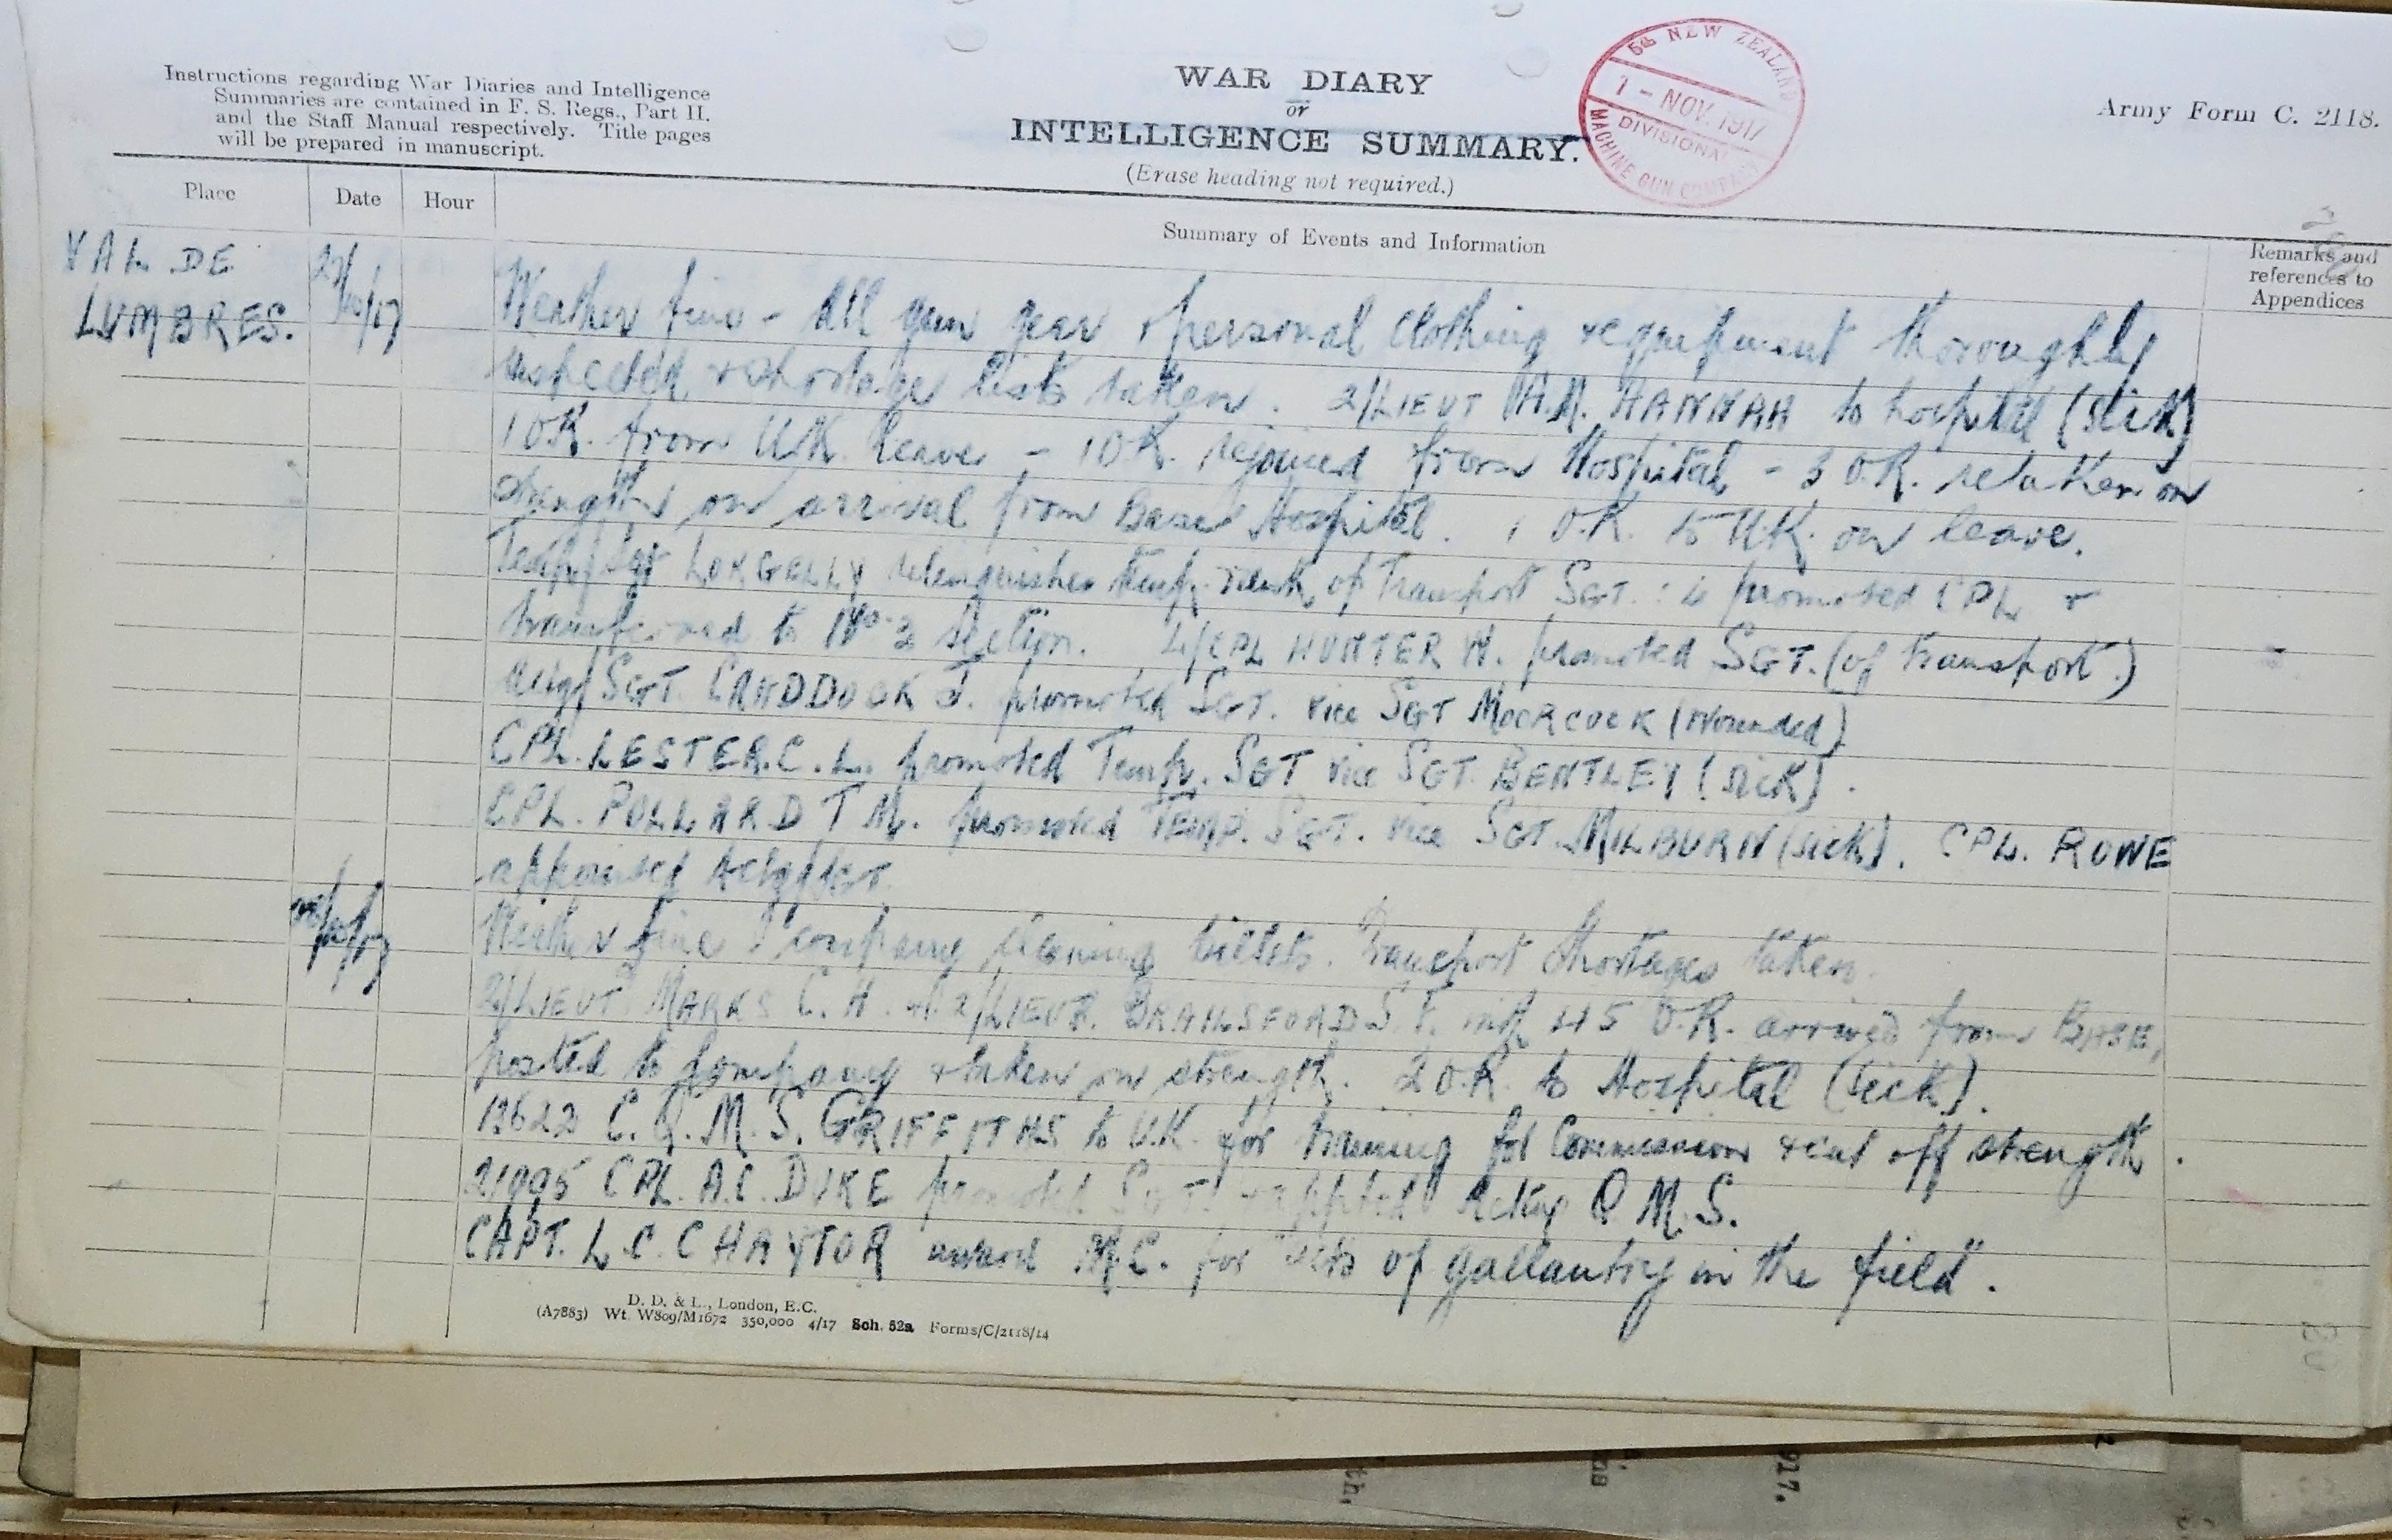 Instructions regarding War Diaries and Intelligence
Summaries are contained in F. S. Regs., Part II.
and the Staff Manual respectively. Title pages
will be prepared in manuscript.
WAR DIARY
or
INTELLIGENCE SUMMARY.
(Erase heading not required.)
5th NEW ZEALAND
1 - NOV. 1917
DIVISIONAL
MACHINE GUN COMPANY
Army Form C. 2118.
Place
Date
Hour
Summary of Events and Information
Remarks and
references to
Appendices
VAL DE
LUMBRES.
Weather fine - All gun gear & personal clothing & equipment thoroughly
inspected, & shortage lists taken. 2/LIEUT HANNAH to hospital (sick)
1 O.R. from U.K. leave - 1 O.R. rejoined from Hospital - 3 O.R. retaken on
strength on arrival from Base Hospital. 1 O.R. to U.K. on leave.
Temp/Sgt LONGELLY relinquishes temp. rank of Transport SGT. : is promoted CPL &
transferred to No. 2 Section. L/CPL HUNTER W. promoted SGT. (of Transport.)
SGT. CRADDOCK J. promoted SGT. vice SGT MOORCOCK (wounded)
CPL. LESTER. C. L. promoted Temp. SGT vice SGT. BENTLEY (sick).
CPL. POLLARD T M. promoted TEMP. SGT. vice SGT. MILBURN (sick). CPL. ROWE
appointed
Weather fine company cleaning billets. Transport shortages taken.
2/LIEUT MARKS C. H. & 2/LIEUT. BRAILSFORD S. F. with 45 O.R. arrived from BASE,
posted to Company & taken on strength. 2 O.R. to Hospital (sick).
C. Q. M. S. GRIFFITHS to U.K. for training for Commission & cut off strength.
CPL. A.C. DUKE promoted SGT. & appted Acting Q M. S.
CAPT. L. C. CHAYTOR award M.C. for "acts of gallantry in the field".
D. D. & L., London, E.C.
(A7883) Wt. W809/M1672 350,000 4/17 Sch. 52a Forms/C/2118/14